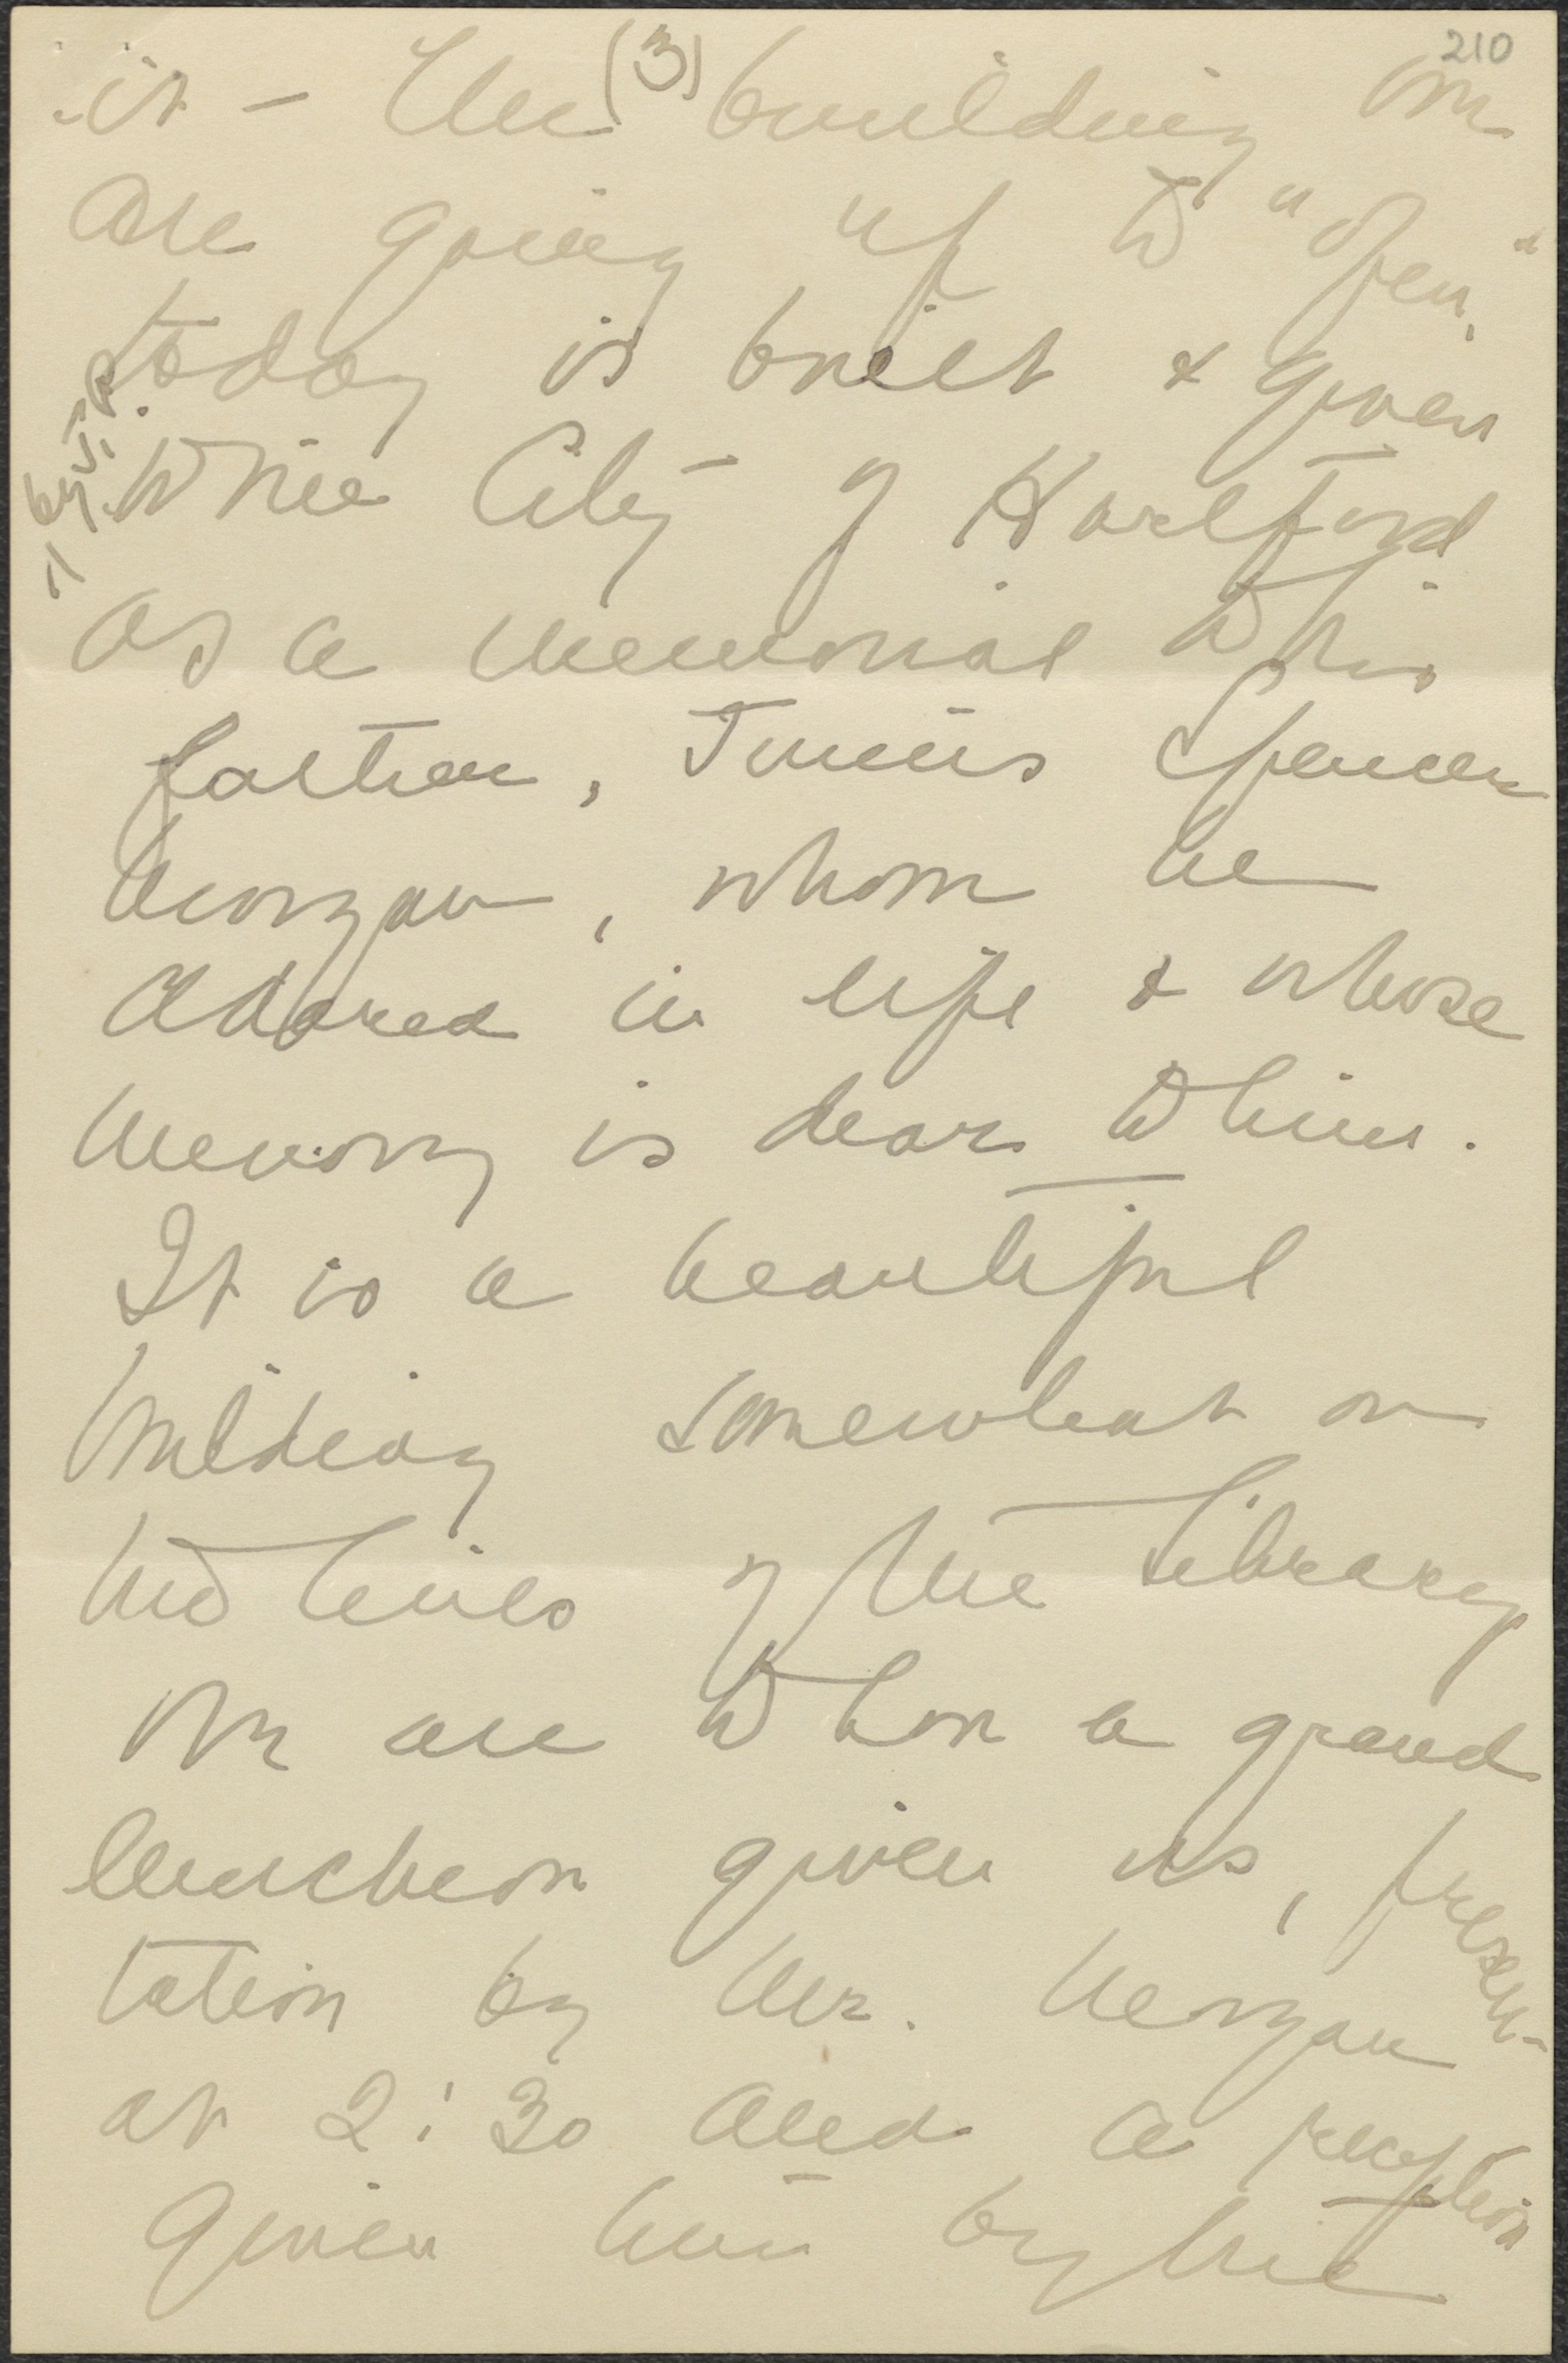 210
(3)
it - the building we
are going up to "open"
today is built & given
by J.P.
to the City of Hartford
as a memorial to his
father, Junius Spencer
Morgan, whom he
adored in life & whose
memory is dear to him.
It is a beautiful
building somewhat on
the lines of the Library
We are to have a grand
luncheon given us, presen-
tation by Mr. Morgan
at 2:30 and a reception
given him by the